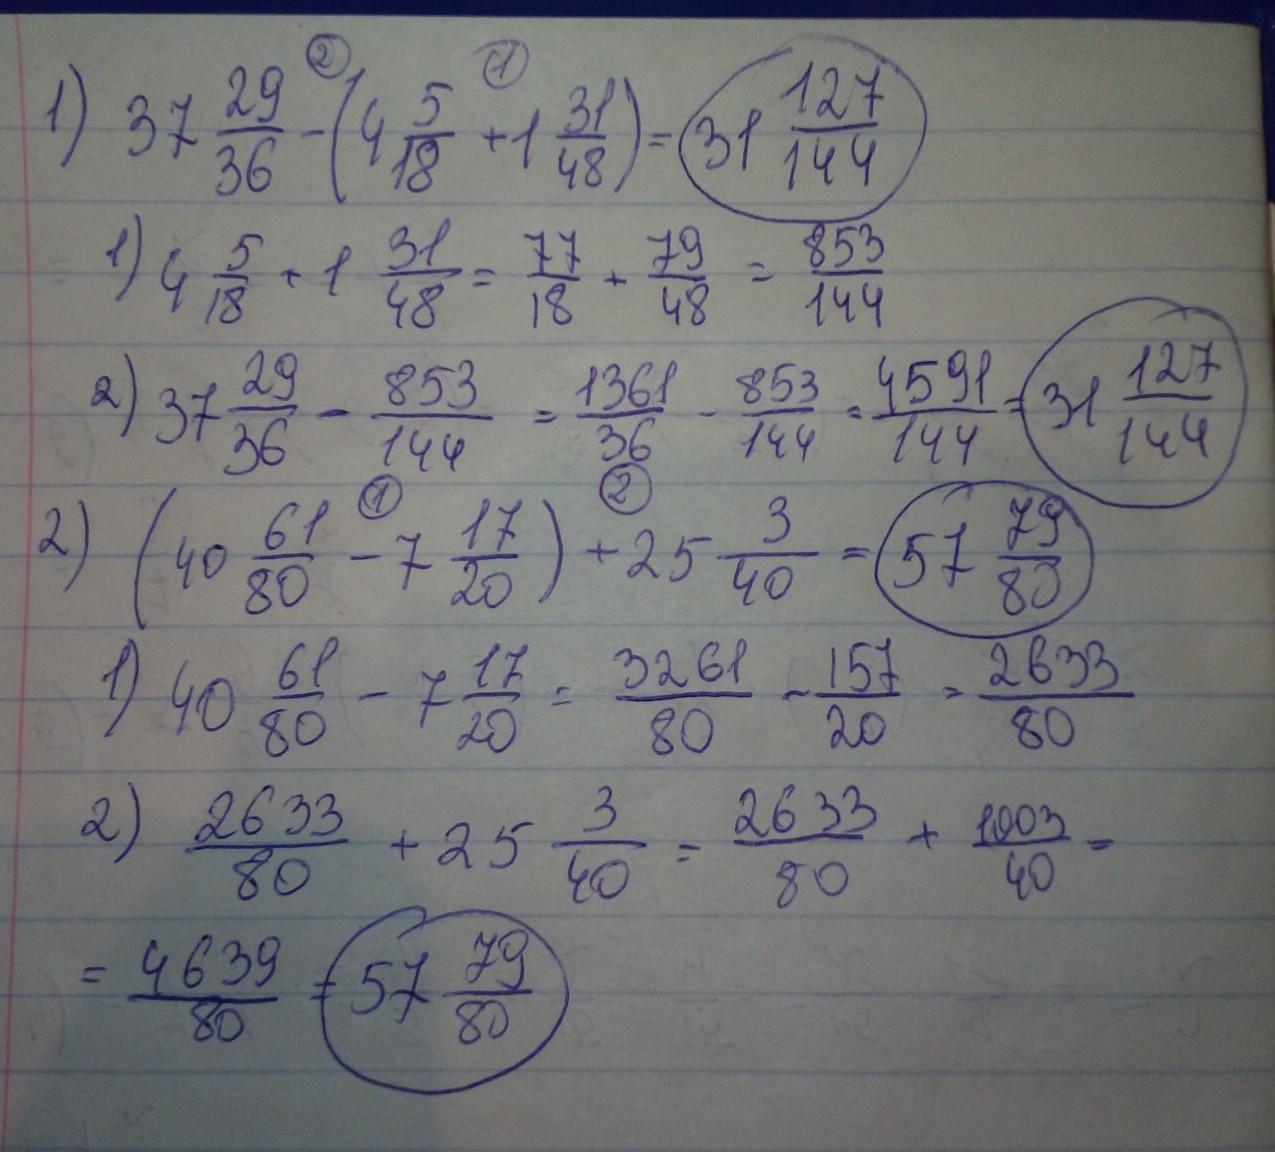 1) 37 29/36 - (4 5/18 + 1 31/48) = 31 127/144
② ①
1) 4 5/18 + 1 31/48 = 77/18 + 79/48 = 853/144
2) 37 29/36 - 853/144 = 1361/36 - 853/144 = 4591/144 = 31 127/144
① ②
2) (40 61/80 - 7 17/20) + 25 3/40 = 57 79/80
1) 40 61/80 - 7 17/20 = 3261/80 - 157/20 = 2633/80
2) 2633/80 + 25 3/40 = 2633/80 + 1003/40 =
= 4639/80 = 57 79/80